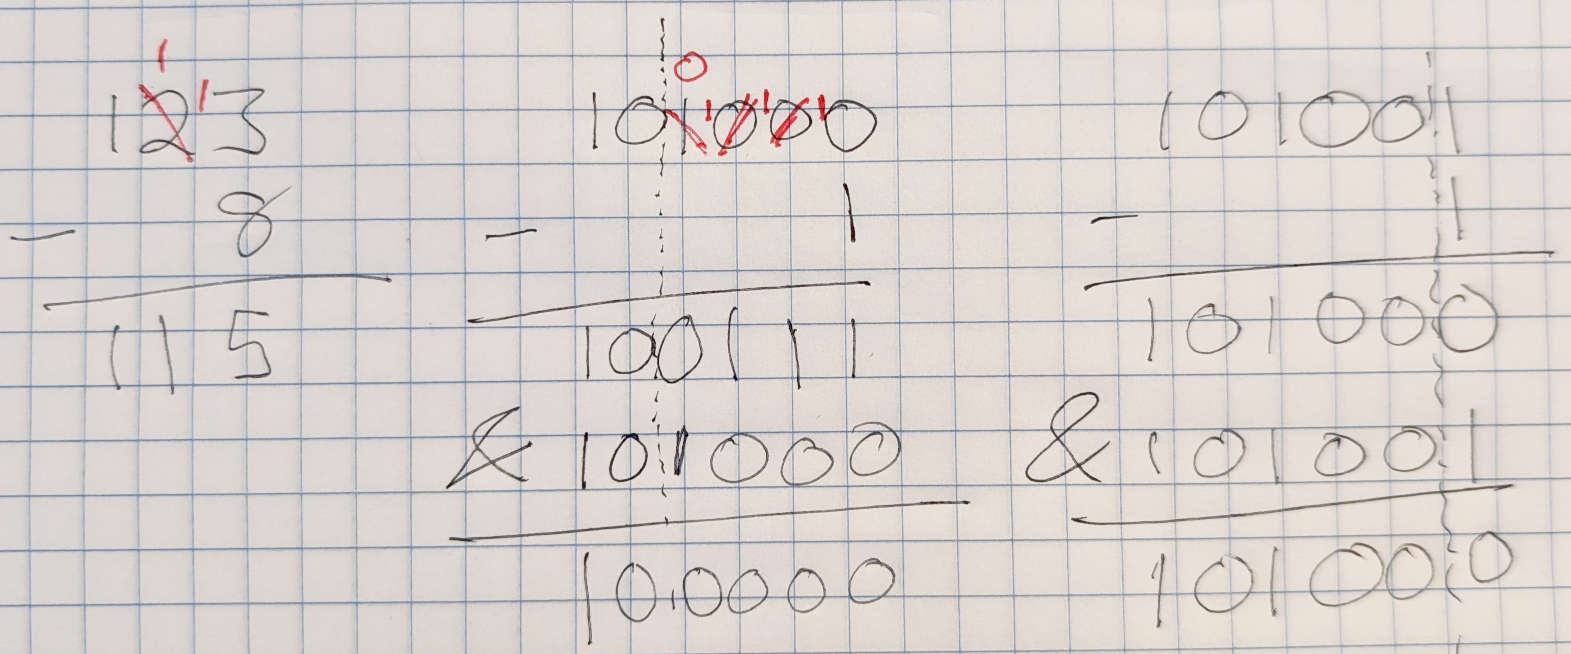 1 0
1 2 1 3 1 0 1 1 0 1 0 1 0 1 0 1 0 0 1
- 8 - 1 - 1
1 1 5 1 0 0 1 1 1 1 0 1 0 0 0
& 1 0 1 0 0 0 & 1 0 1 0 0 1
1 0 0 0 0 0 1 0 1 0 0 0